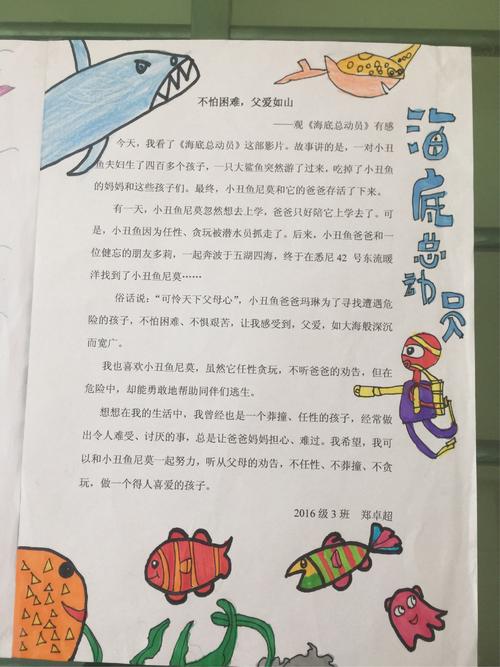 不怕困难，父爱如山
——观《海底总动员》有感
今天，我看了《海底总动员》这部影片。故事讲的是，一对小丑
鱼夫妇生了四百多个孩子，一只大鲨鱼突然游了过来，吃掉了小丑鱼
的妈妈和这些孩子们。最终，小丑鱼尼莫和它的爸爸存活了下来。
有一天，小丑鱼尼莫忽然想去上学，爸爸只好陪它上学去了。可
是，小丑鱼因为任性、贪玩被潜水员抓走了。后来，小丑鱼爸爸和一
位健忘的朋友多莉，一起奔波于五湖四海，终于在悉尼 42 号东流暖
洋找到了小丑鱼尼莫……
俗话说：“可怜天下父母心”，小丑鱼爸爸玛琳为了寻找遭遇危
险的孩子，不怕困难、不惧艰苦，让我感受到，父爱，如大海般深沉
而宽广。
我也喜欢小丑鱼尼莫，虽然它任性贪玩，不听爸爸的劝告，但在
危险中，却能勇敢地帮助同伴们逃生。
想想在我的生活中，我曾经也是一个莽撞、任性的孩子，经常做
出令人难受、讨厌的事，总是让爸爸妈妈担心、难过。我希望，我可
以和小丑鱼尼莫一起努力，听从父母的劝告，不任性、不莽撞、不贪
玩，做一个得人喜爱的孩子。
2016 级 3 班 郑卓超
海底总动员